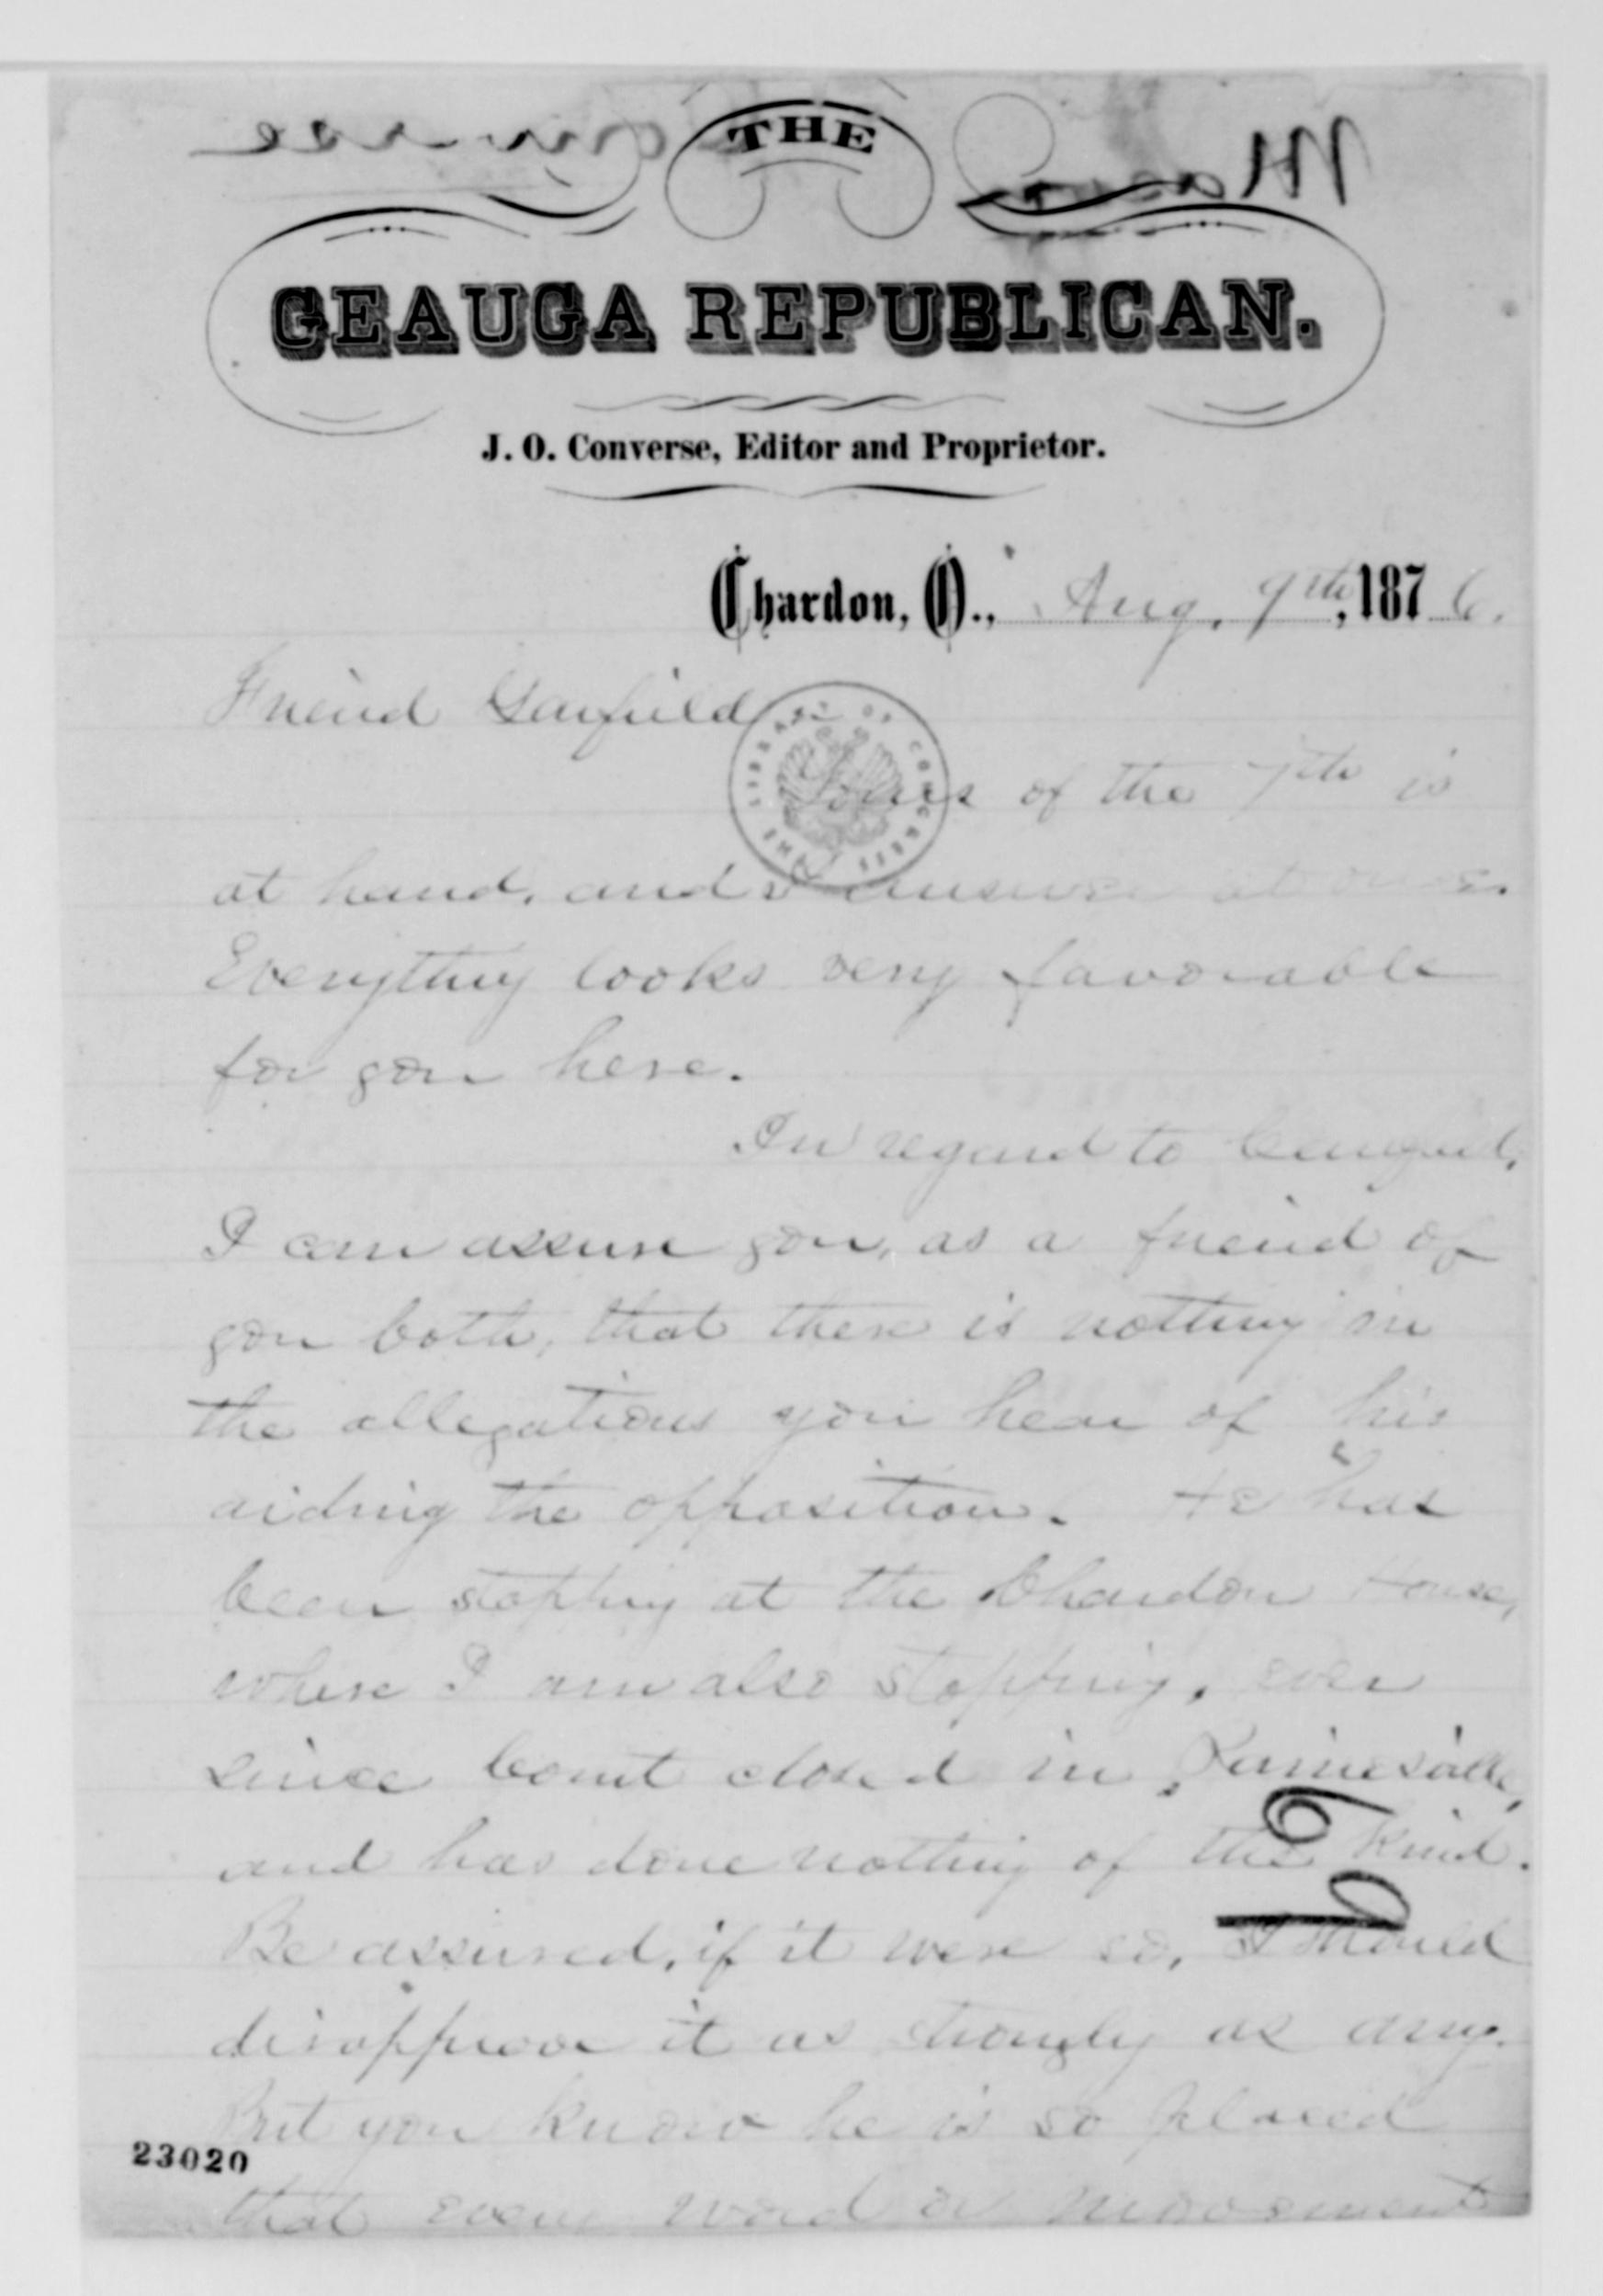 THE
GEAUGA REPUBLICAN.
J. O. Converse, Editor and Proprietor.
Chardon, O., Aug. 9th, 1876.
Friend Garfield
Yours of the 7th is
at hand, and I answer at once.
Everything looks very favorable
for you here.
In regard to
I can assure you, as a friend of
you both, that there is nothing in
the allegations you hear of his
aiding the opposition. He has
been stopping at the Chardon House,
where I am also stopping, ever
since Court closed in Painesville,
and has done nothing of the kind.
Be assured, if it were so, I should
disapprove it as strongly as any.
But you know he is so placed
that every word or movement
23020